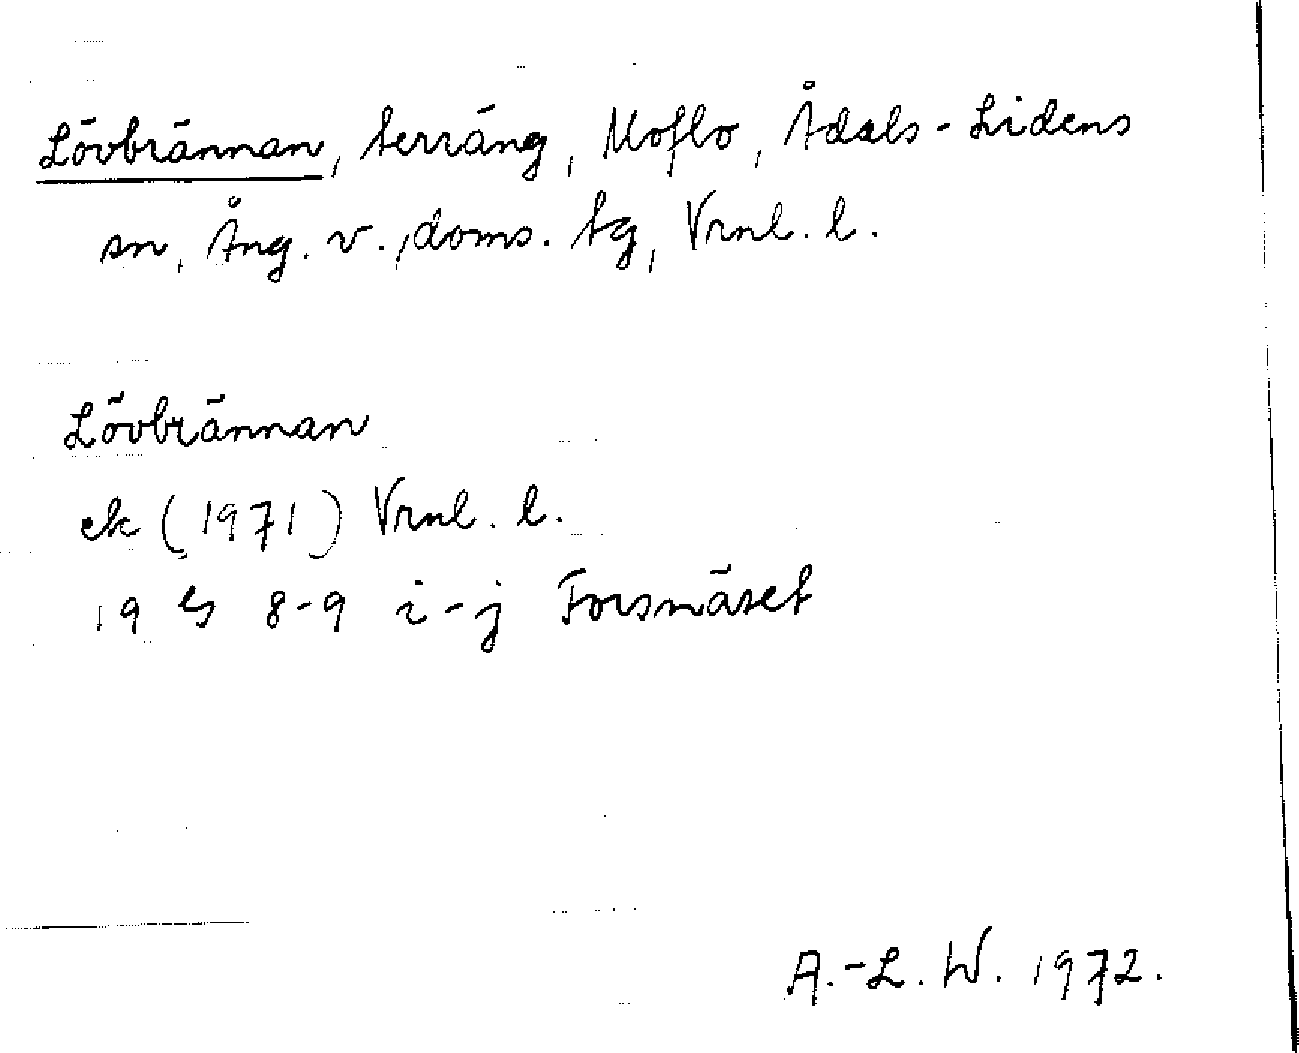 Lövbrännan, terräng, Moflo, Ådals-Lidens
sn, Ång. v., doms. tg, Vrnl. l.
Lövbrännan
ek (1971) Vrnl. l.
19 G 8-9 i-j Forsnäset
A.-L. W. 1972.